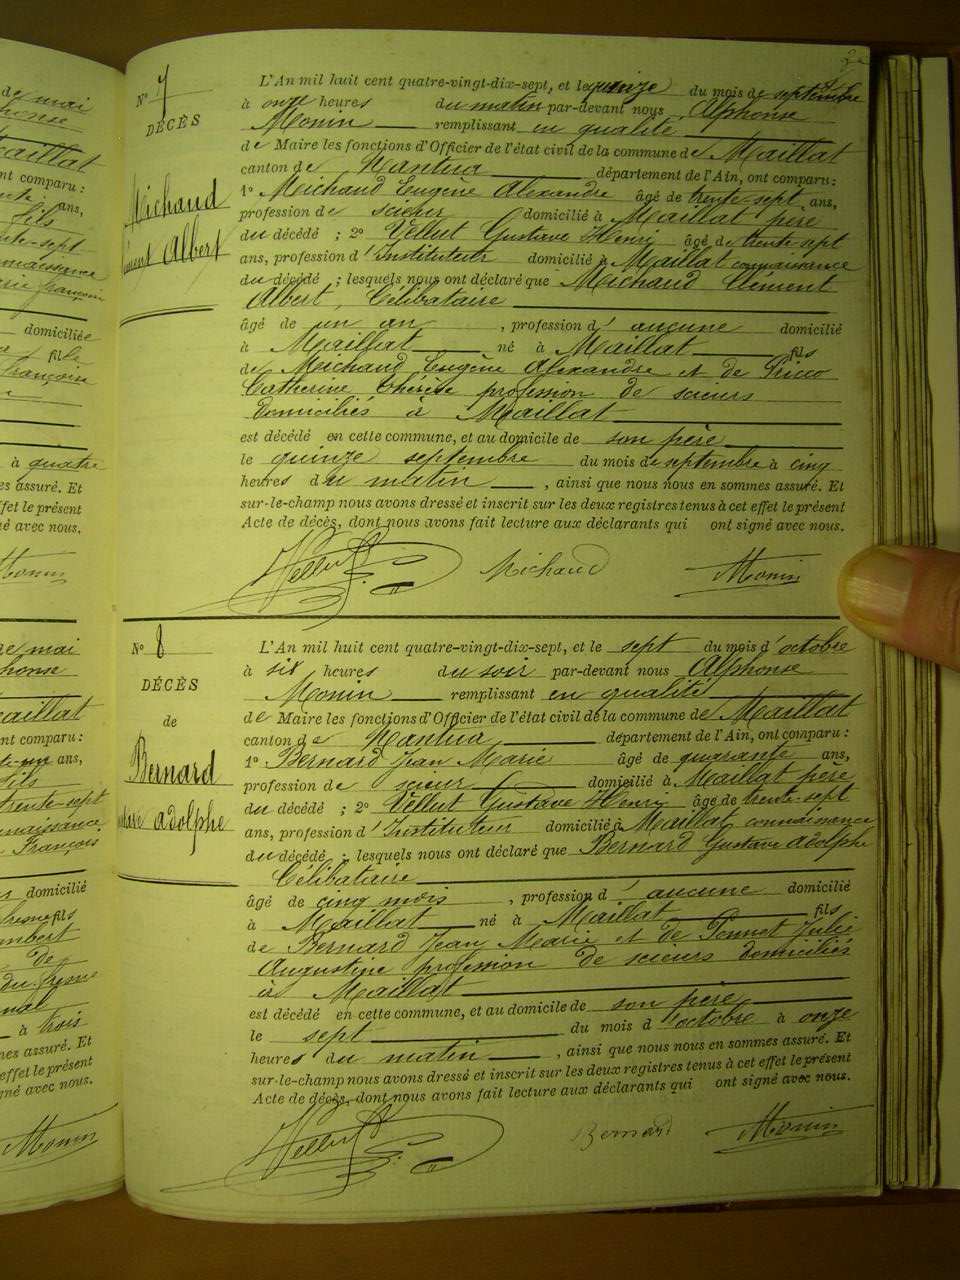 N° 7
DÉCÈS
Michaud
Clément Albert
L'An mil huit cent quatre-vingt-dix-sept, et le quinze du mois de septembre
à onze heures du matin par-devant nous Alphonse
Monin remplissant en qualité
de Maire les fonctions d'Officier de l'état civil de la commune de Maillat
canton de Nantua département de l'Ain, ont comparu:
1° Michaud Eugène Alexandre âgé de trente-sept ans,
profession de scieur domicilié à Maillat père
du décédé ; 2° Vellut Gustave Henri âgé de trente sept
ans, profession d'Instituteur domicilié à Maillat connaissance
du décédé ; lesquels nous ont déclaré que Michaud Clément
Albert, Célibataire
âgé de un an , profession d' aucune domicilié
à Maillat né à Maillat fils
de Michaud Eugène Alexandre et de Pricco
Catherine Thérèse profession de scieurs
domiciliés à Maillat
est décédé en cette commune, et au domicile de son père
le quinze septembre du mois de septembre à cinq
heures du matin , ainsi que nous nous en sommes assuré. Et
sur-le-champ nous avons dressé et inscrit sur les deux registres tenus à cet effet le présent
Acte de décès, dont nous avons fait lecture aux déclarants qui ont signé avec nous.
Vellut Michaud Monin
N° 8
DÉCÈS
de
Bernard
Gustave Adolphe
L'An mil huit cent quatre-vingt-dix-sept, et le sept du mois d'octobre
à six heures du soir par-devant nous Alphonse
Monin remplissant en qualité
de Maire les fonctions d'Officier de l'état civil de la commune de Maillat
canton de Nantua département de l'Ain, ont comparu :
1° Bernard Jean Marie âgé de quarante ans,
profession de scieur domicilié à Maillat père
du décédé ; 2° Vellut Gustave Henri âgé de trente-sept
ans, profession d'Instituteur domicilié à Maillat connaissance
du décédé , lesquels nous ont déclaré que Bernard Gustave Adolphe
Célibataire
âgé de cinq mois , profession d' aucune domicilié
à Maillat né à Maillat fils
de Bernard Jean Marie et de Ponnet Julie
Augustine profession de scieurs domiciliés
à Maillat
est décédé en cette commune, et au domicile de son père
le sept du mois d'octobre à onze
heures du matin , ainsi que nous nous en sommes assuré. Et
sur-le-champ nous avons dressé et inscrit sur les deux registres tenus à cet effet le présent
Acte de décès, dont nous avons fait lecture aux déclarants qui ont signé avec nous.
Vellut Bernard Monin